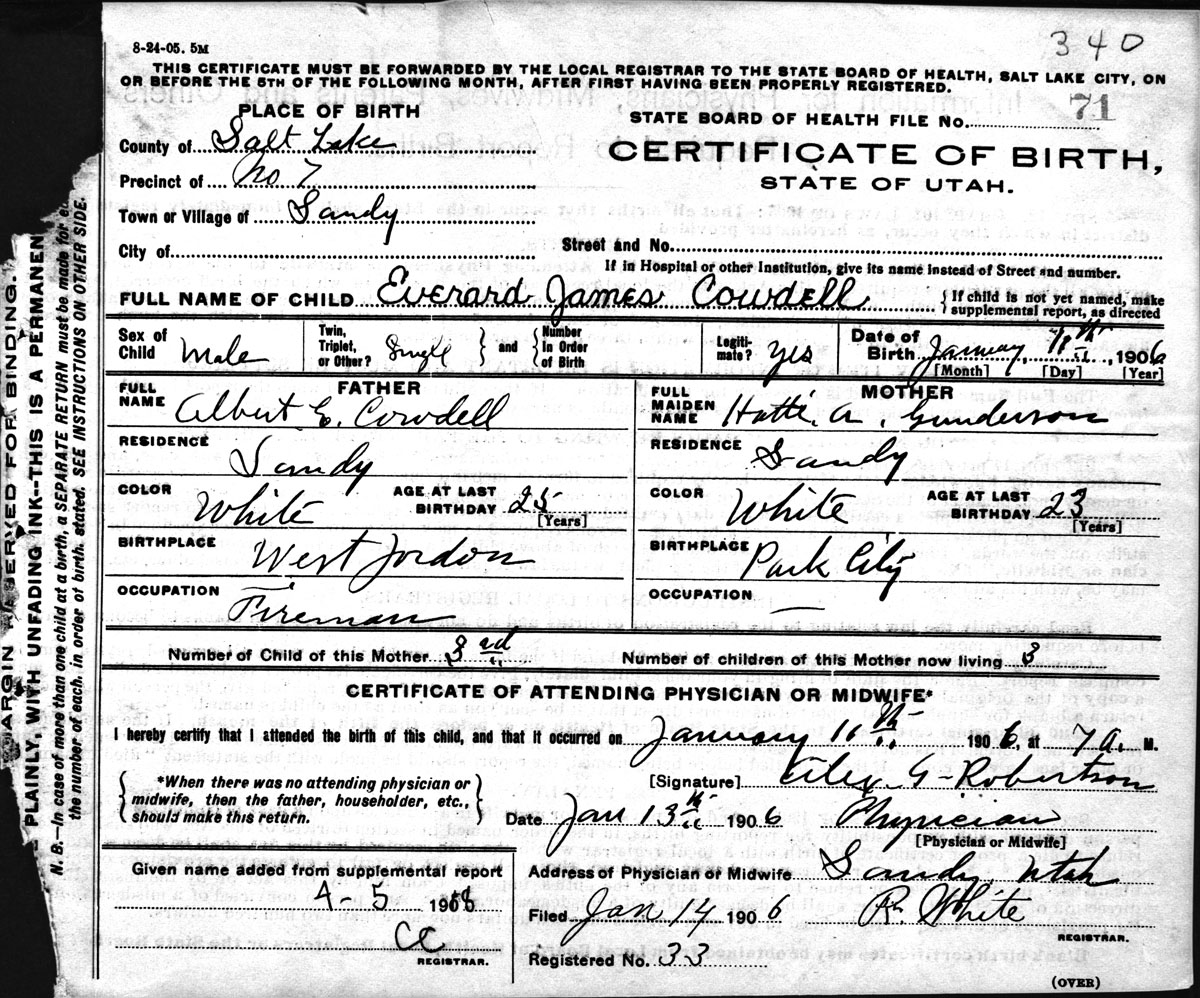 340
8-24-05. 5M
THIS CERTIFICATE MUST BE FORWARDED BY THE LOCAL REGISTRAR TO THE STATE BOARD OF HEALTH, SALT LAKE CITY, ON
OR BEFORE THE 5TH OF THE FOLLOWING MONTH, AFTER FIRST HAVING BEEN PROPERLY REGISTERED.
PLACE OF BIRTH
STATE BOARD OF HEALTH FILE No. 71
County of Salt Lake
CERTIFICATE OF BIRTH,
STATE OF UTAH.
Precinct of No 7
Town or Village of Sandy
City of
Street and No.
If in Hospital or other Institution, give its name instead of Street and number.
FULL NAME OF CHILD Everard James Cowdell
{If child is not yet named, make
supplemental report, as directed
Sex of Child Male
Twin, Triplet, or Other? Single } and { Number In Order of Birth
Legitimate? yes
Date of Birth January 11th, 1906
[Month] [Day] [Year]
FATHER
FULL NAME Albert E. Cowdell
RESIDENCE Sandy
COLOR White
AGE AT LAST BIRTHDAY 25
[Years]
BIRTHPLACE West Jordon
OCCUPATION Fireman
MOTHER
FULL MAIDEN NAME Hatti. A. Gunderson
RESIDENCE Sandy
COLOR White
AGE AT LAST BIRTHDAY 23
[Years]
BIRTHPLACE Park City
OCCUPATION —
Number of Child of this Mother 3rd
Number of children of this Mother now living 3
CERTIFICATE OF ATTENDING PHYSICIAN OR MIDWIFE*
I hereby certify that I attended the birth of this child, and that it occurred on January 11th 1906, at 7 a. M.
{*When there was no attending physician or
midwife, then the father, householder, etc.,
should make this return.}
[Signature] Alex. G. Robertson
Date Jan 13th 1906
Physician
[Physician or Midwife]
Given name added from supplemental report
4-5 1908
CC
REGISTRAR.
Address of Physician of Midwife Sandy Utah
Filed Jan 14 1906 R. White
REGISTRAR.
Registered No. 33
(OVER)
MARGIN RESERVED FOR BINDING.
PLAINLY, WITH UNFADING INK--THIS IS A PERMANEN
N. B.—In case of more than one child at a birth, a SEPARATE RETURN must be made for
the number of each, in order of birth, stated. SEE INSTRUCTIONS ON OTHER SIDE.